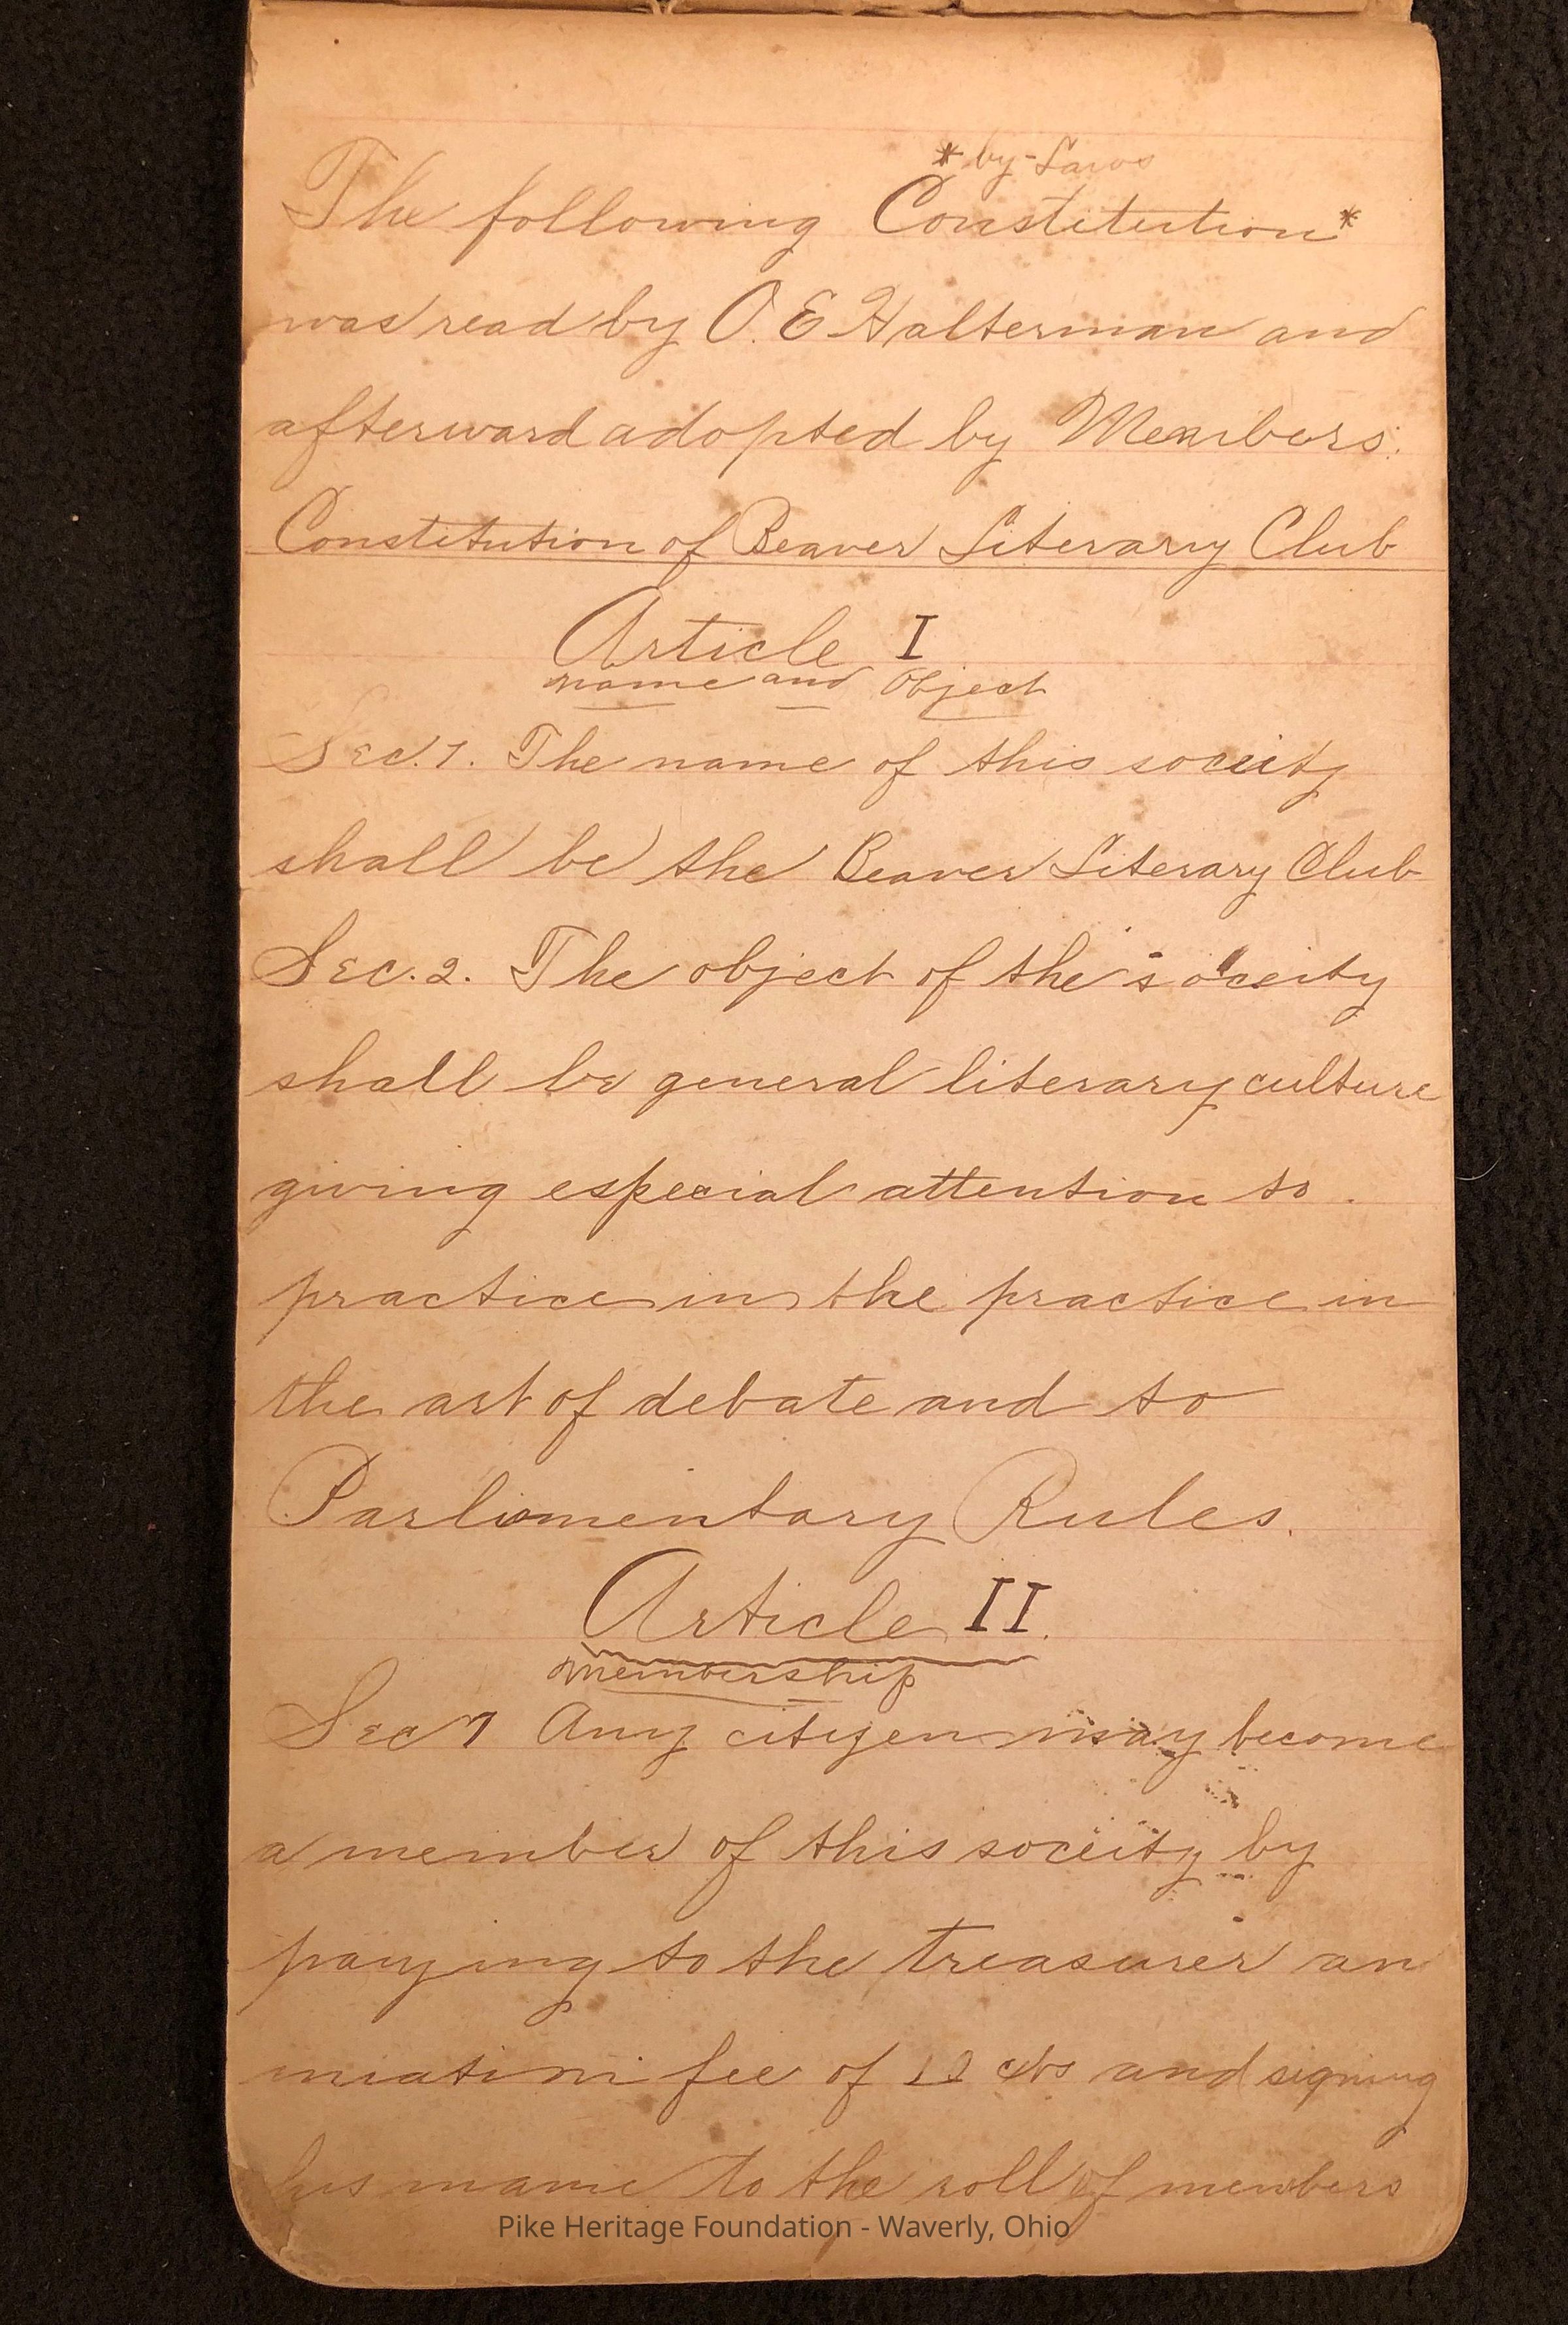 * by-Laws
The following Constitution*
was read by O. E Halterman and
afterward adopted by Members.
Constitution of Beaver Literary Club
Article I
name and Object
Sec. 1. The name of this soceity
shall be the Beaver Literary Club
Sec. 2. The object of the soceity
shall be general literary culture
giving especial attention to.
practice in the practice in
the art of debate and to
Parlimentary Rules.
Article II.
membership
Sec 1 Any citizen may become
a member of this soceity by
paying to the treasurer an
fee of cts and signing
his name to the roll of members
Pike Heritage Foundation - Waverly, Ohio